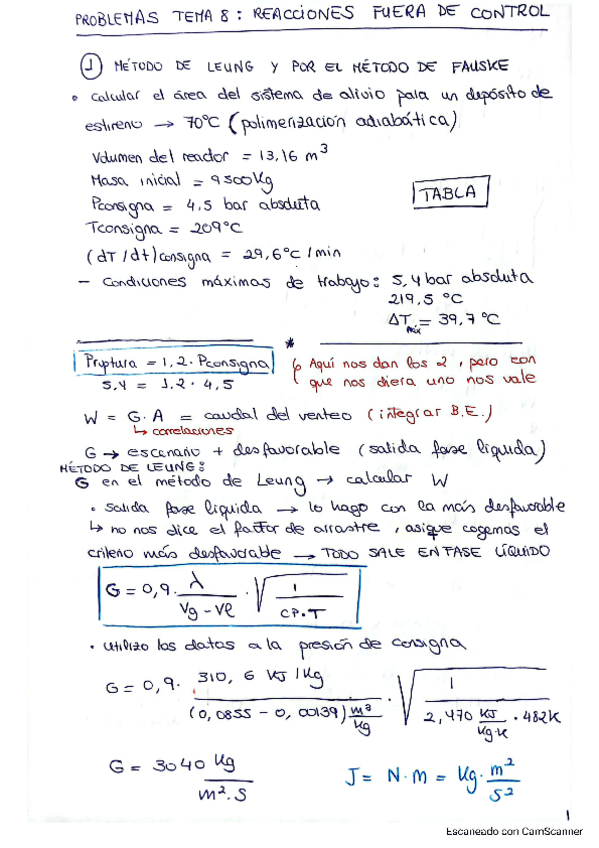 PROBLEMAS TEMA 8: REACCIONES FUERA DE CONTROL
1 MÉTODO DE LEUNG Y POR EL MÉTODO DE FAUSKE
• Calcular el área del sistema de alivio para un depósito de
estireno → 70°C (polimerización adiabática)
Volumen del reactor = 13,16 m³
Masa inicial = 9500 Kg
Pconsigna = 4,5 bar absoluta
TABLA
Tconsigna = 209°C
(dT/dt)consigna = 29,6°C/min
- Condiciones máximas de trabajo: 5,4 bar absoluta
219,5 °C
ΔT máx = 39,7 °C
*
Pruptura = 1,2 · Pconsigna
Aquí nos dan los 2, pero con
que nos diera uno nos vale
5,4 = 1,2 · 4,5
W = G · A = caudal del venteo (integrar B.E.)
↳ correlaciones
G → escenario + desfavorable (salida fase líquida)
MÉTODO DE LEUNG:
G en el método de Leung → calcular W
• Salida fase líquida → lo hago con la más desfavorable
↳ no nos dice el factor de arrastre, asique cogemos el
criterio más desfavorable → TODO SALE EN FASE LÍQUIDO
G = 0,9 · λ / (Vg - Ve) · √(1 / (CP·T))
• Utilizo los datos a la presión de consigna
G = 0,9 · 310,6 KJ/Kg / ((0,0855 - 0,00139) m³/Kg) · √(1 / (2,470 KJ/Kg·K · 482K))
G = 3040 Kg / m²·s
J = N·m = Kg · m²/s²
1
Escaneado con CamScanner